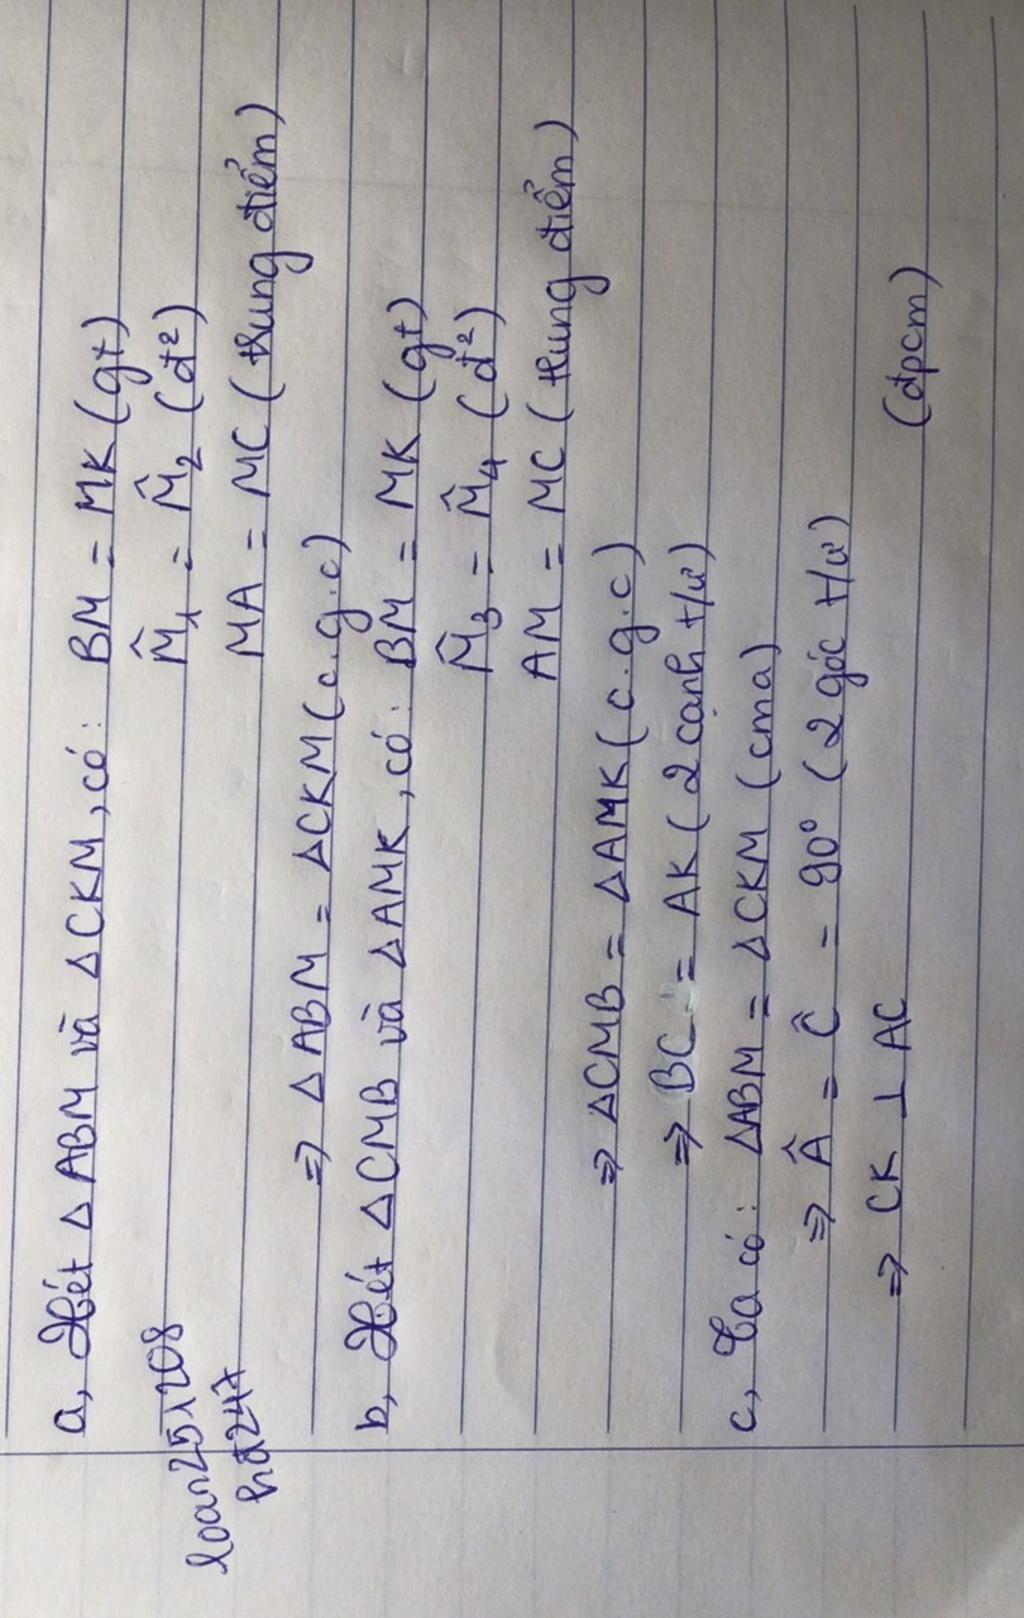 a, Xét Δ ABM và Δ CKM, có: BM = MK (gt)
M̂₁ = M̂₂ (đ²)
loan251208
MA = MC (trung điểm)
hđ247
⇒ Δ ABM = Δ CKM (c.g.c)
b, Xét Δ CMB và Δ AMK, có: BM = MK (gt)
M̂₃ = M̂₄ (đ²)
AM = MC (trung điểm)
⇒ Δ CMB = Δ AMK (c.g.c)
⇒ BC = AK (2 cạnh t/ư)
c, Ta có: Δ ABM = Δ CKM (cma)
⇒ Â = Ĉ = 90° (2 góc t/ư)
⇒ CK ⊥ AC
(đpcm)